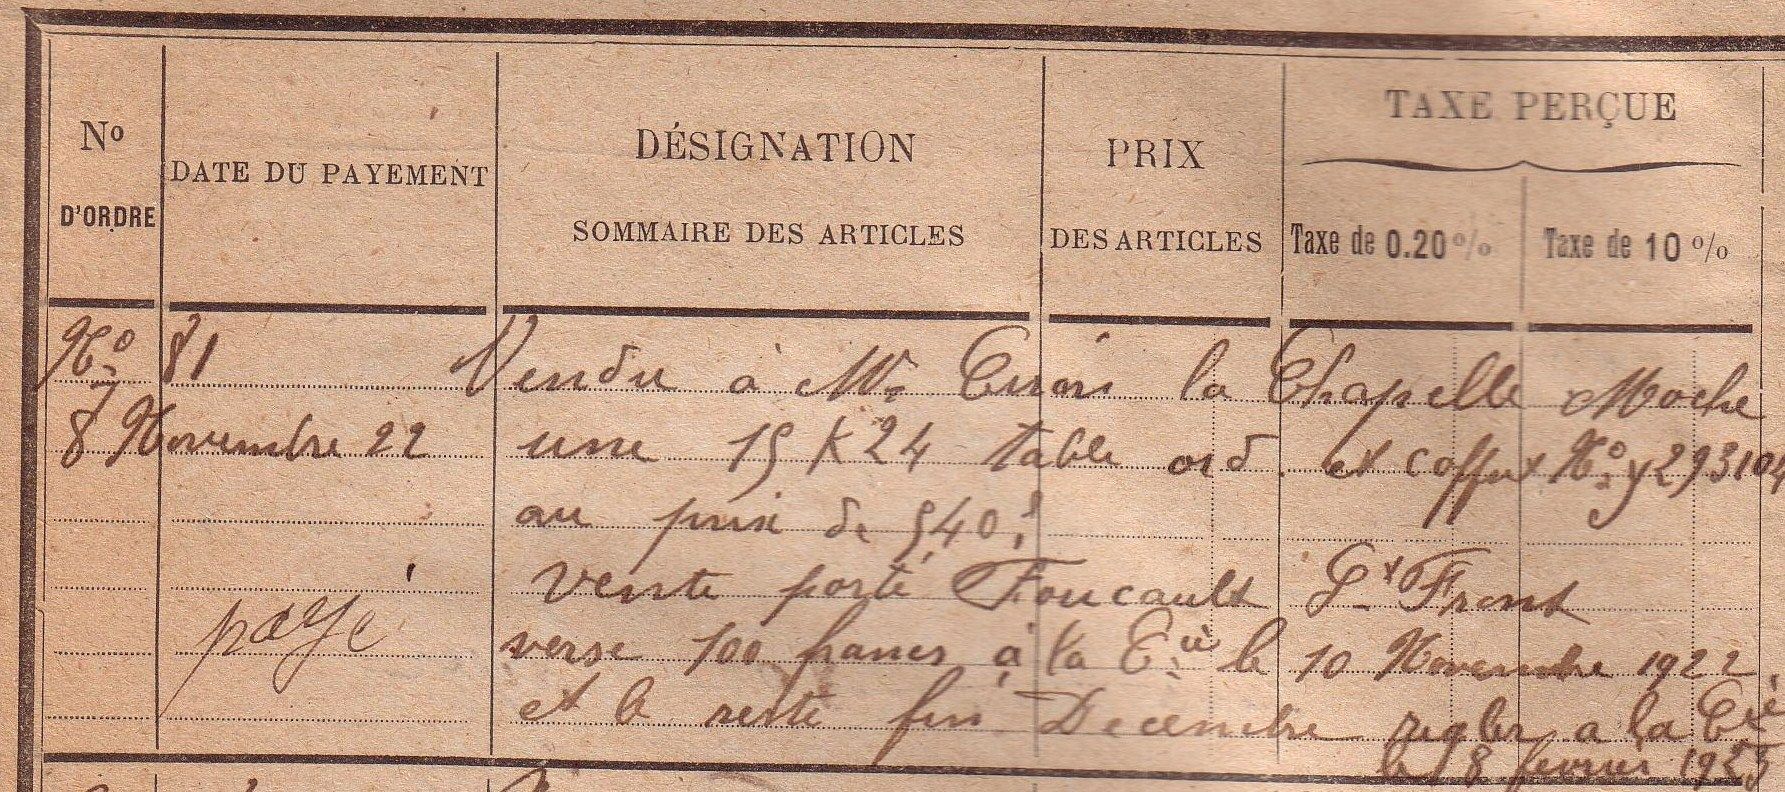 No D'ORDRE
DATE DU PAYEMENT
DÉSIGNATION
SOMMAIRE DES ARTICLES
PRIX
DES ARTICLES
TAXE PERÇUE
Taxe de 0.20 %
Taxe de 10 %
No 81 Vendu à Mr la Chapelle Moche
8 Novembre 22 une 15 K 24 table ord. et coffret No y293104
au prix de 540 f
vente porté Foucault St Front
payé verse 100 francs à la Cie le 10 Novembre 1922
et le reste fin Decembre regler a la Cie
le 8 fevrier 1923